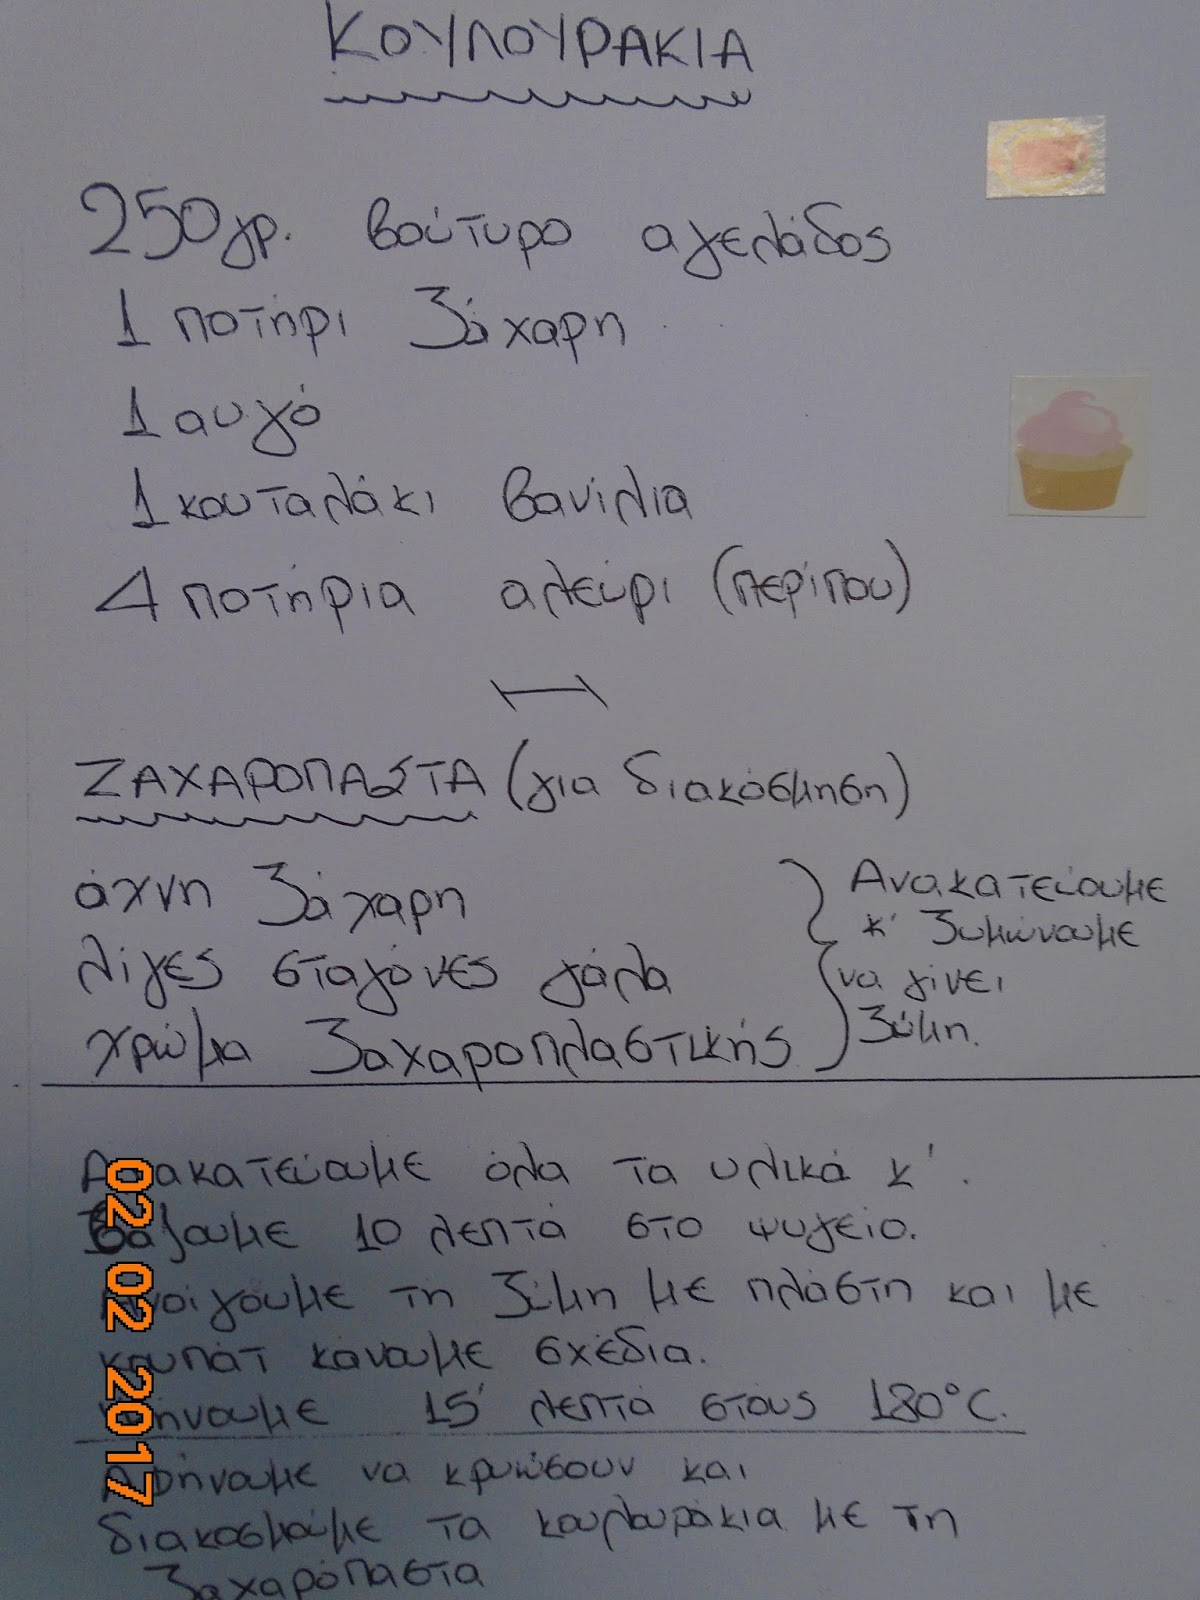 ΚΟΥΛΟΥΡΑΚΙΑ
250γρ. βούτυρο αγελάδος
1 ποτήρι ζάχαρη
1 αυγό
1 κουταλάκι βανίλια
4 ποτήρια αλεύρι (περίπου)
ΖΑΧΑΡΟΠΑΣΤΑ (για διακόσμηση)
άχνη ζάχαρη
λίγες σταγόνες γάλα
χρώμα ζαχαροπλαστικής
Ανακατεύουμε
κ' ζυμώνουμε
να γίνει
ζύμη.
Ανακατεύουμε όλα τα υλικά κ'.
βάζουμε 10 λεπτά στο ψυγείο.
Ανοίγουμε τη ζύμη με πλάστη και με
κουπάτ κάνουμε σχέδια.
Ψήνουμε 15' λεπτά στους 180°C.
Αφήνουμε να κρυώσουν και
διακοσμούμε τα κουλουράκια με τη
ζαχαρόπαστα
02 02 2017